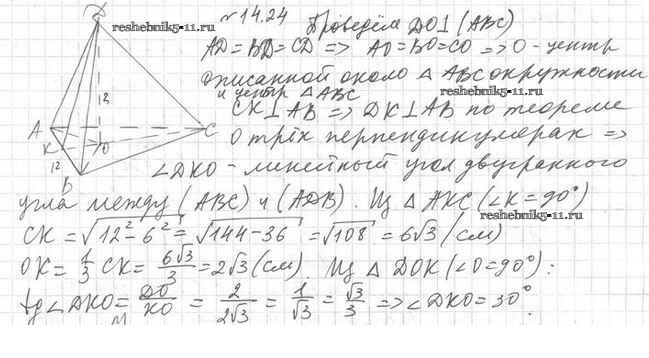 №14.24
reshebnik5-11.ru
Проведём DO⊥(ABC)
AD=BD=CD => AO=BO=CO => O - центр
описанной около △ABC окружности
и центр △ABC
CK⊥AB => DK⊥AB по теореме
о трёх перпендикулярах =>
∠DKO - линейный угол двугранного
угла между (ABC) и (ADB). Из △AKC (∠K=90°)
reshebnik5-11.ru
CK = √12²-6² = √144-36 = √108 = 6√3 (см)
OK = 1/3 CK = 6√3/3 = 2√3 (см). Из △DOK (∠O=90°):
tg∠DKO = DO/KO = 2/2√3 = 1/√3 = √3/3 => ∠DKO=30°.
D
A
K
12
B
O
C